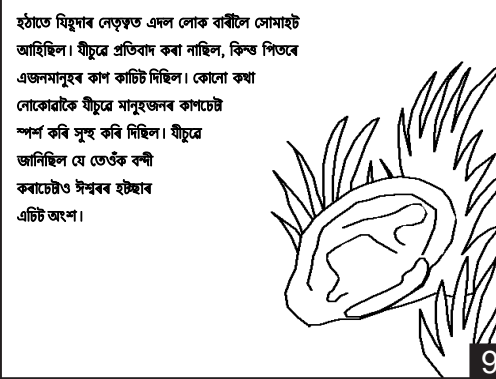 হঠাতে যিহূদাৰ নেতৃত্বত এদল লোক বাৰীলৈ সোমাহট
আহিছিল। যীচুৱে প্ৰতিবাদ কৰা নাছিল, কিন্ত পিতৰে
এজনমানুহৰ কাণ কাচিট দিছিল। কোনো কথা
নোকোৱাকৈ যীচুৱে মানুহজনৰ কাণচেট্টা
স্পৰ্শ কৰি সুস্থ কৰি দিছিল। যীচুৱে
জানিছিল যে তেওঁক বন্দী
কৰাচেট্টাও ঈশ্বৰৰ হট্টছাৰ
এচিট অংশ।
9